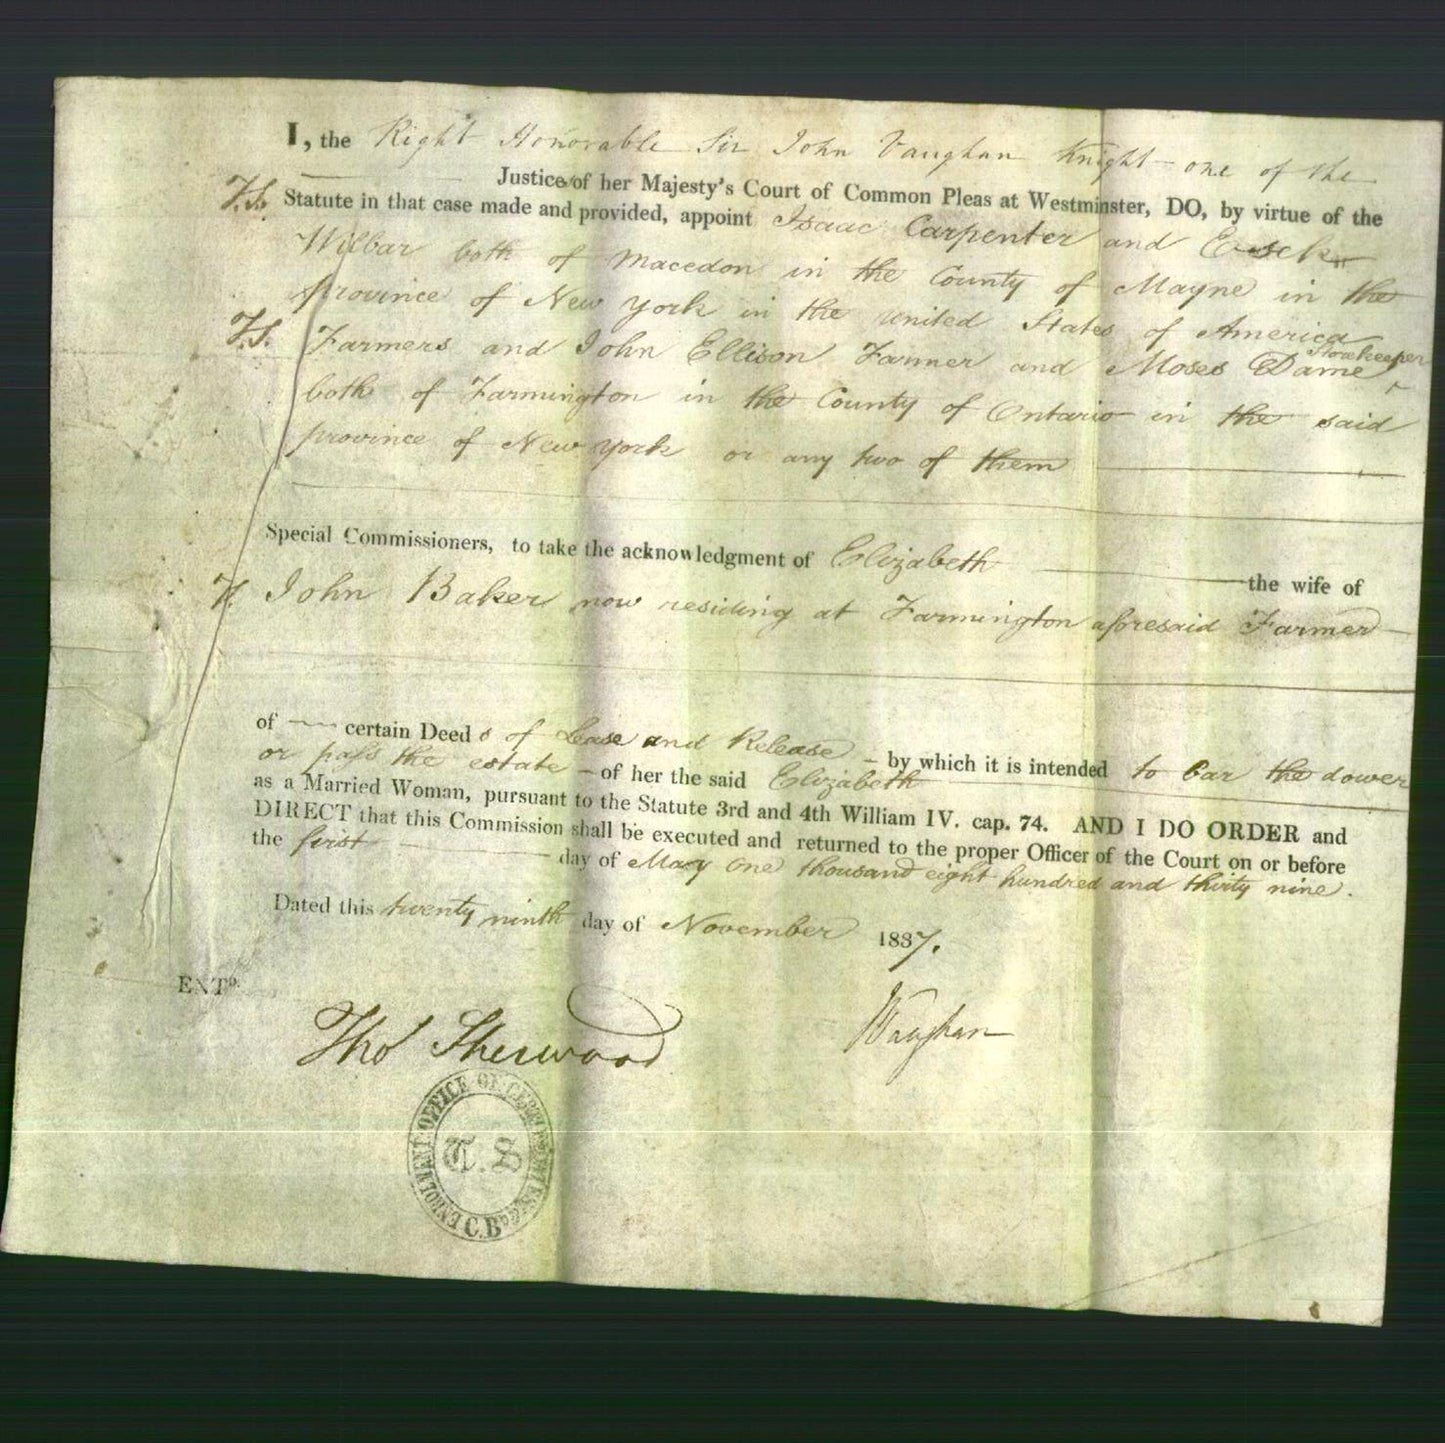 I, the Right Honorable Sir John Vaughan Knight one of the
Justices of her Majesty's Court of Common Pleas at Westminster, DO, by virtue of the
T.S. Statute in that case made and provided, appoint Isaac Carpenter and
Wilbar both of Macedon in the County of Mayne in the
province of New York in the united States of America
T.S. Farmers and John Ellison Farmer and Moses Dame Storekeeper
both of Farmington in the County of Ontario in the said
province of New York or any two of them
Special Commissioners, to take the acknowledgment of Elizabeth the wife of
John Baker now residing at Farmington aforesaid Farmer
of certain Deeds of Lease and Release by which it is intended to bar the dower
or pass the estate of her the said Elizabeth
as a Married Woman, pursuant to the Statute 3rd and 4th William IV. cap. 74. AND I DO ORDER and
DIRECT that this Commission shall be executed and returned to the proper Officer of the Court on or before
the first day of May One thousand eight hundred and thirty nine.
Dated this twenty ninth day of November 1837.
EXTD.
Thos Sherwood
Vaughan
ENROLMENT OFFICE OF CERTIFICATES
T.S
C.B